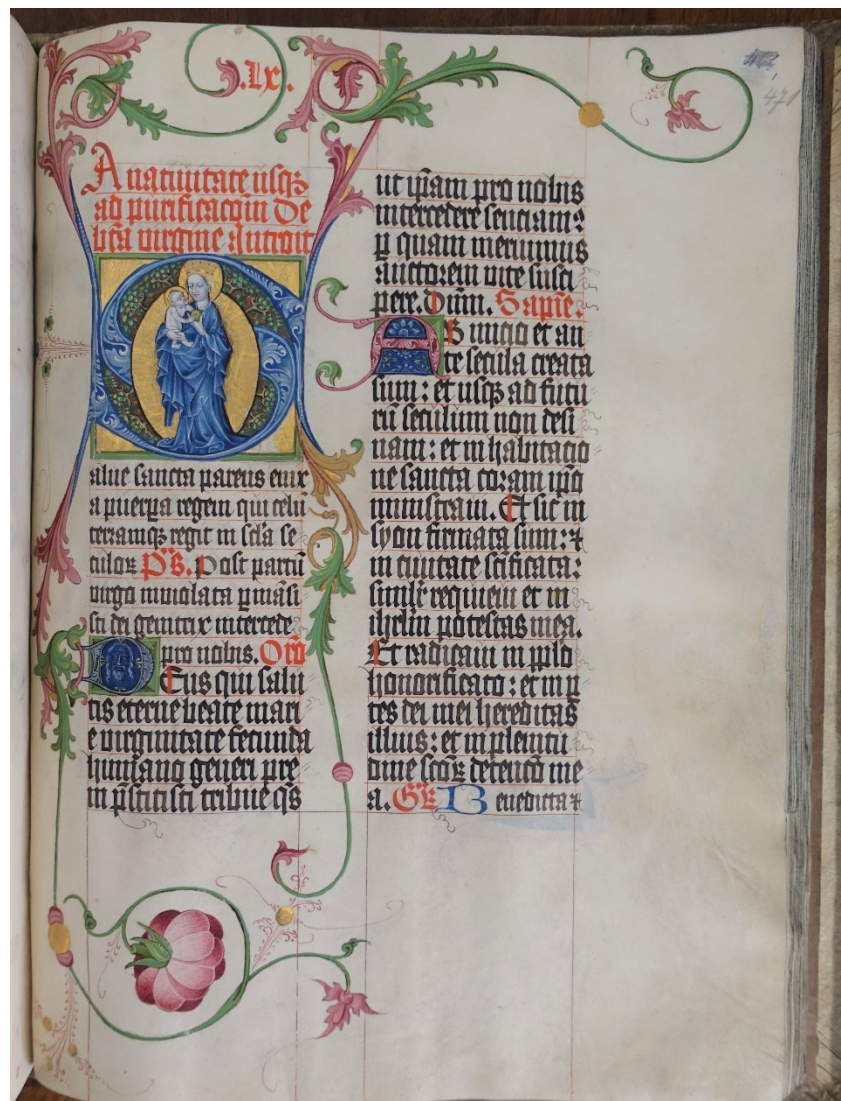 .Lx.
471
A natiuitate usqȝ
ad purificacōīn De
btā uirgine Introit
alue sancta parens enix
a puerpa regem qui celū
terramqȝ regit in sclā se
culoꝝ Ps. Post partū
uirgo inuiolata pmāsi
sti dei genitrix intercede
pro nobis. Orō
Eus qui salu
tis eterne beate mari
e uirginitate fecunda
humano generi pre
m p̄stitisti tribue qs
ut ipsam pro nobis
intercedere senciam⁹
p quam meruimus
auctorem uite susci
pere. Dūm. Sapīe.
AB inicio et an
te secula creata
sum: et usqȝ ad futu
rū seculum non desi
nam: et in habitacio
ne sancta coram ip̄o
ministraui. Et sic in
syon firmata sum: ⁊
in ciuitate sc̄ificata:
simil̄r requieui et in
ihrlm potestas mea.
Et radicaui in pp̄lo
honorificato: et in p
tes dei mei hereditas
illius: et in plenitu
dine sc̄oꝝ detencō me
a. Gr̄ Benedicta ⁊